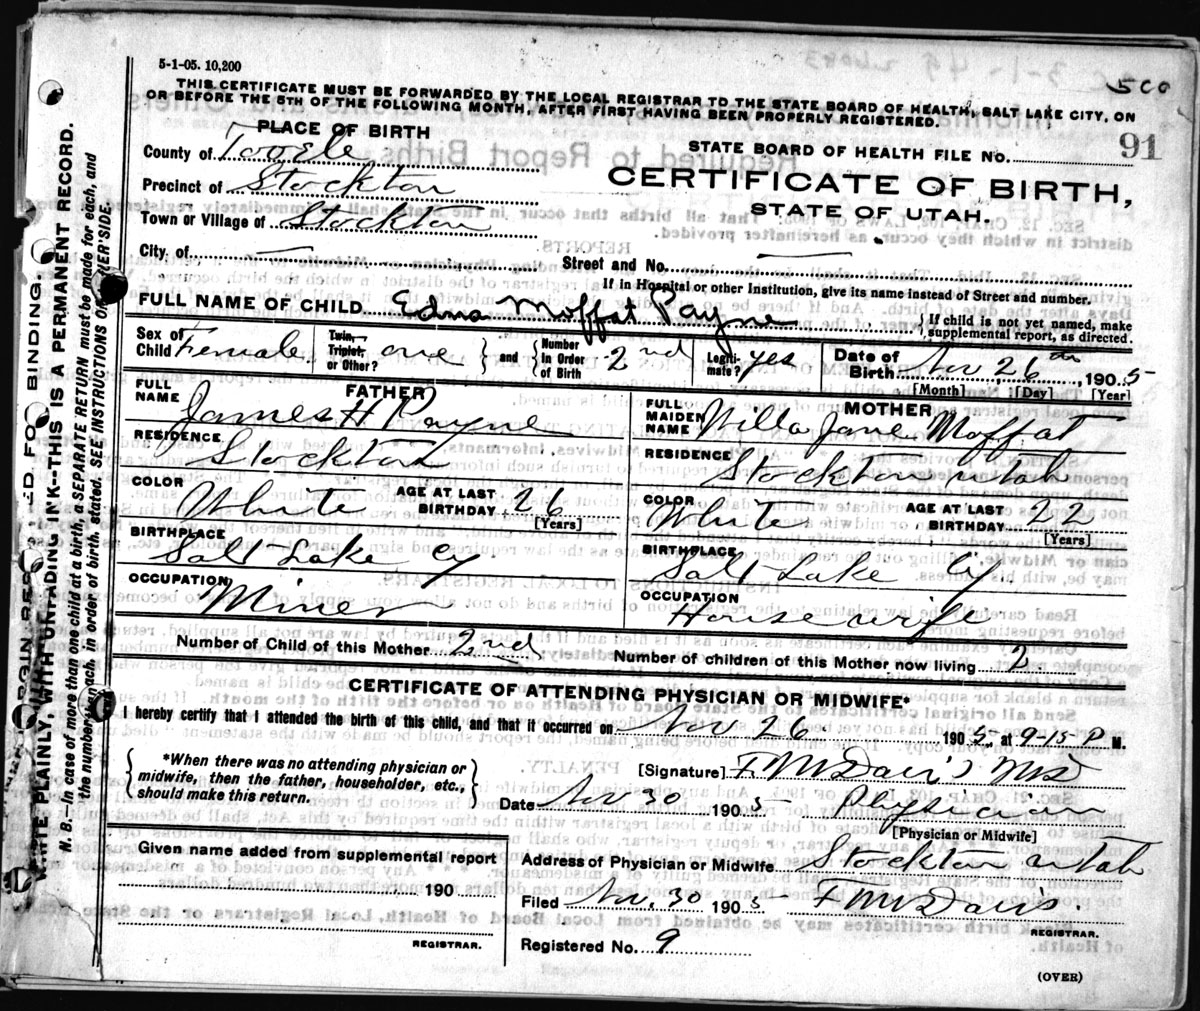 5-1-05. 10,200
500
THIS CERTIFICATE MUST BE FORWARDED BY THE LOCAL REGISTRAR TO THE STATE BOARD OF HEALTH, SALT LAKE CITY, ON
OR BEFORE THE 5TH OF THE FOLLOWING MONTH, AFTER FIRST HAVING BEEN PROPERLY REGISTERED.
PLACE OF BIRTH
STATE BOARD OF HEALTH FILE NO. 91
County of Tooele
CERTIFICATE OF BIRTH,
Precinct of Stockton
STATE OF UTAH.
Town or Village of Stockton
City of —
Street and No. —
If in Hospital or other Institution, give its name instead of Street and number.
FULL NAME OF CHILD Edna Moffat Payne
{If child is not yet named, make
supplemental report, as directed.
Sex of Child Female
Twin, Triplet, or Other? one } and { Number In Order of Birth 2nd
Legitimate? yes
Date of Birth Nov 26th, 1905
[Month] [Day] [Year]
FATHER
FULL NAME James H Payne
RESIDENCE Stockton
COLOR White
AGE AT LAST BIRTHDAY 26
[Years]
BIRTHPLACE Salt Lake Cy
OCCUPATION Miner
MOTHER
FULL MAIDEN NAME Willa Jane Moffat
RESIDENCE Stockton Utah
COLOR White
AGE AT LAST BIRTHDAY 22
[Years]
BIRTHPLACE Salt Lake Cy
OCCUPATION House wife
Number of Child of this Mother 2nd
Number of children of this Mother now living 2
CERTIFICATE OF ATTENDING PHYSICIAN OR MIDWIFE*
I hereby certify that I attended the birth of this child, and that it occurred on Nov 26. 1905, at 9-15 P M.
{*When there was no attending physician or
midwife, then the father, householder, etc.,
should make this return.}
[Signature] F M Davis MD
Date Nov 30 1905 Physician
[Physician or Midwife]
Given name added from supplemental report
190
REGISTRAR.
Address of Physician or Midwife Stockton Utah
Filed Nov. 30 1905 F M Davis.
REGISTRAR.
Registered No. 9
(OVER)
MARGIN RESERVED FOR BINDING.
WRITE PLAINLY, WITH UNFADING INK—THIS IS A PERMANENT RECORD.
N. B.—In case of more than one child at a birth, a SEPARATE RETURN must be made for each, and
the number of each, in order of birth, stated. SEE INSTRUCTIONS ON OTHER SIDE.